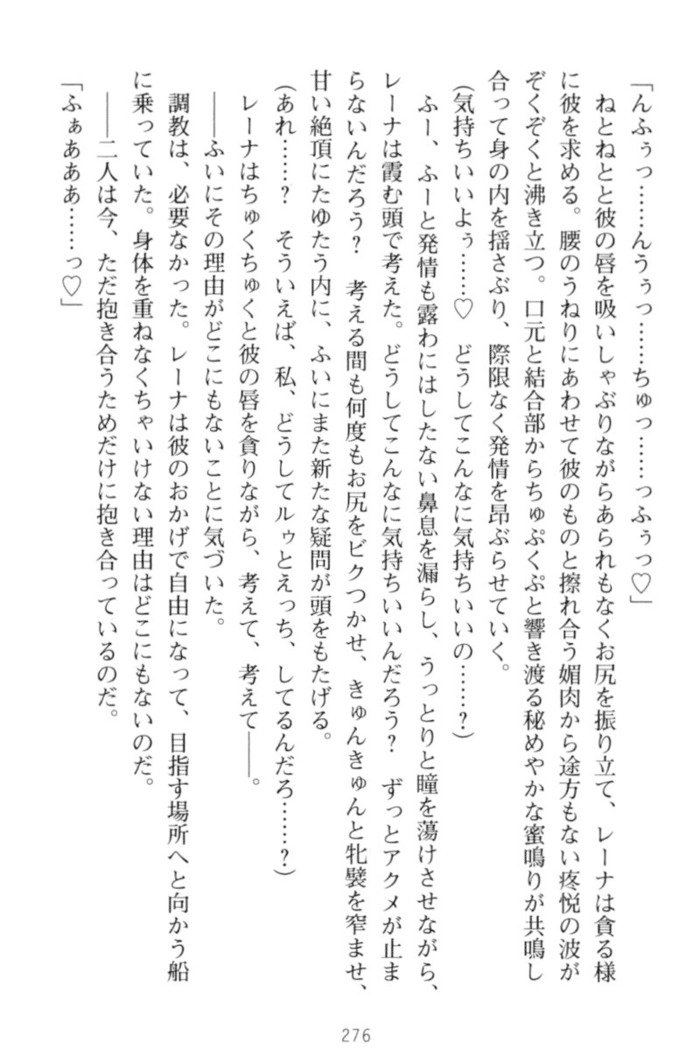 「んふぅっ……んうぅっ……ちゅっ……っふぅっ♡」
　ねとねとと彼の唇を吸いしゃぶりながらあられもなくお尻を振り立て、レーナは貪る様
に彼を求める。腰のうねりにあわせて彼のものと擦れ合う媚肉から途方もない疼悦の波が
ぞくぞくと沸き立つ。口元と結合部からちゅぷくぷと響き渡る秘めやかな蜜鳴りが共鳴し
合って身の内を揺さぶり、際限なく発情を昂ぶらせていく。
(気持ちいいよぅ……♡　どうしてこんなに気持ちいいの……？)
　ふー、ふーと発情も露わにはしたない鼻息を漏らし、うっとりと瞳を蕩けさせながら、
レーナは霞む頭で考えた。どうしてこんなに気持ちいいんだろう？　ずっとアクメが止ま
らないんだろう？　考える間も何度もお尻をビクつかせ、きゅんきゅんと牝襞を窄ませ、
甘い絶頂にたゆたう内に、ふいにまた新たな疑問が頭をもたげる。
(あれ……？　そういえば、私、どうしてルゥとえっち、してるんだろ……？)
　レーナはちゅくちゅくと彼の唇を貪りながら、考えて、考えて――。
　――ふいにその理由がどこにもないことに気づいた。
　調教は、必要なかった。レーナは彼のおかげで自由になって、目指す場所へと向かう船
に乗っていた。身体を重ねなくちゃいけない理由はどこにもないのだ。
　――二人は今、ただ抱き合うためだけに抱き合っているのだ。
「ふぁあああ……っ♡」
276